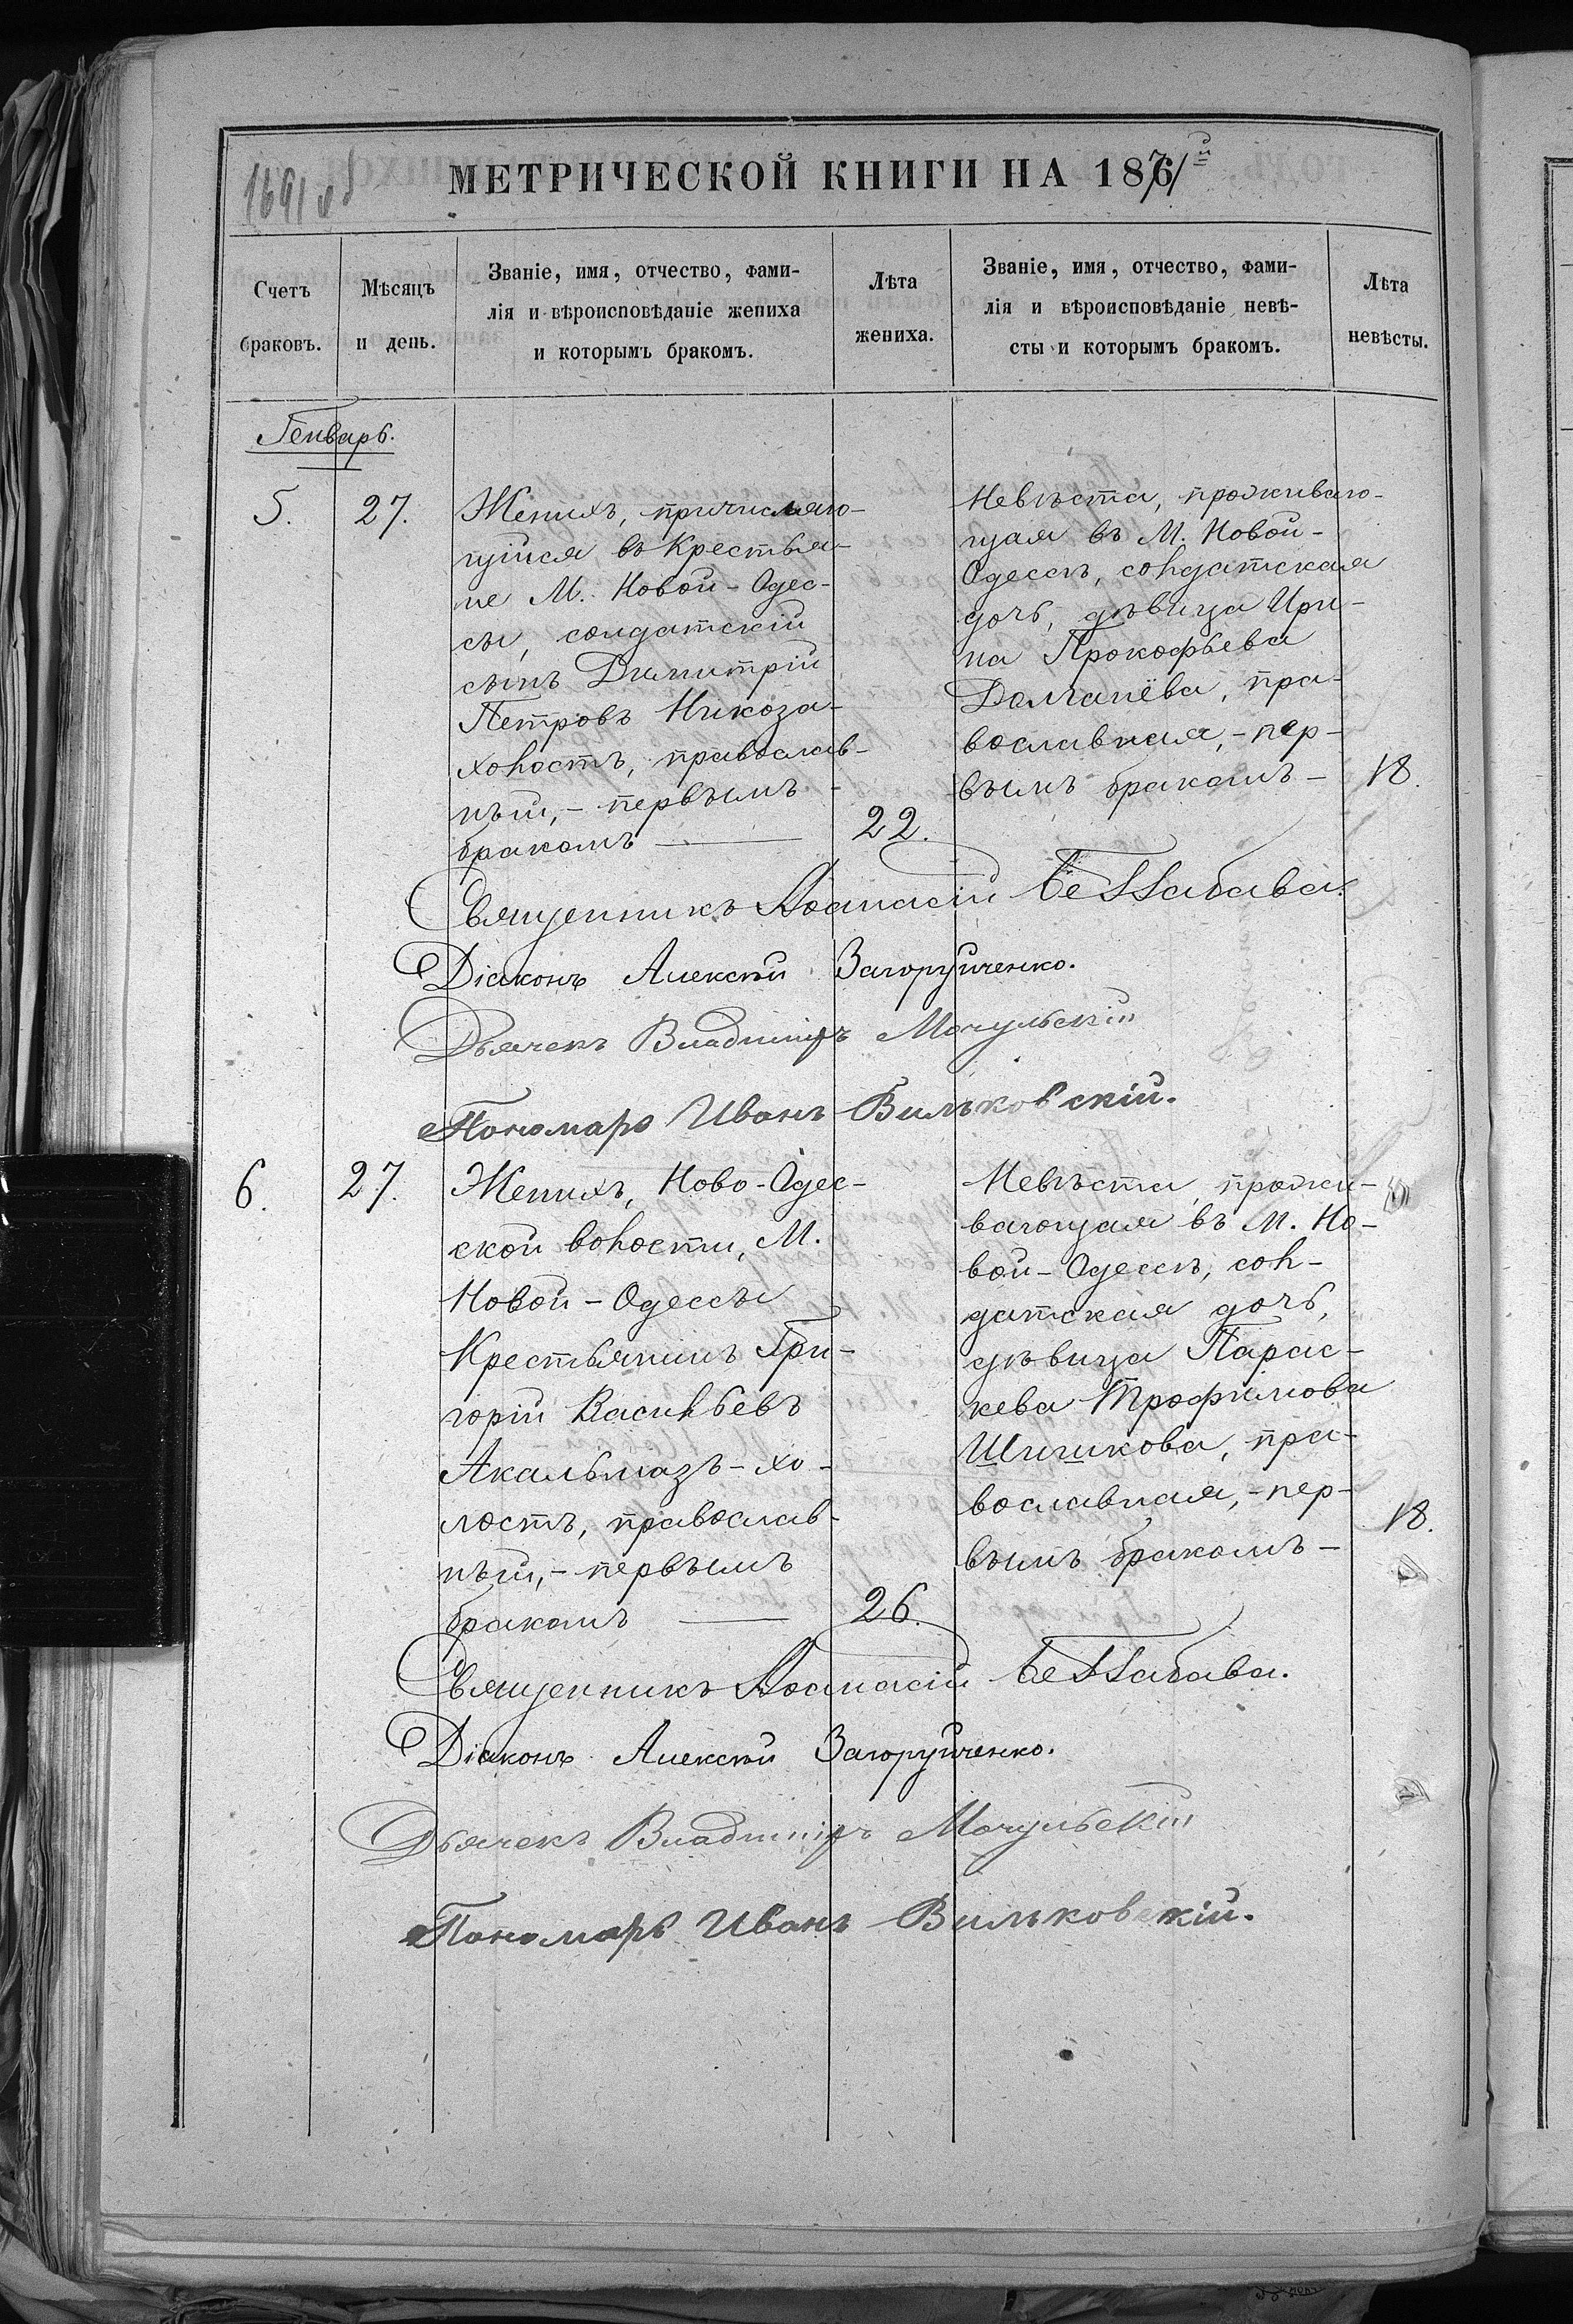 1691 об
МЕТРИЧЕСКОЙ КНИГИ НА 1871й
Счетъ браковъ.
Мѣсяцъ и день.
Званіе, имя, отчество, фами-
лія и вѣроисповѣданіе жениха
и которымъ бракомъ.
Лѣта жениха.
Званіе, имя, отчество, фами-
лія и вѣроисповѣданіе невѣ-
сты и которымъ бракомъ.
Лѣта невѣсты.
Генварь.
5.
27.
Женихъ, причисляю-
щійся въ Крестья-
не М. Новой-Одес-
сы, солдатскій
сынъ Димитрій
Петровъ Никоза-
холостъ, православ-
ный,- первымъ -
бракомъ —
22.
Невѣста, проживаю-
щая въ М. Новой-
Одессѣ, солдатская
дочь, дѣвица Ири-
на Прокофьева
Долганёва, пра-
вославная,- пер-
вымъ бракомъ -
18.
Священникъ Аѳанасій Беззабава.
Діаконъ Алексѣй Загоруйченко.
Дьячекъ Владиміръ Мочульскій
Пономарь Иванъ Вильковскій.
6.
27.
Женихъ, Ново-Одес-
ской волости, М.
Новой-Одессы
Крестьянинъ Гри-
горій Васильевъ
Акальмазъ-хо-
лостъ, православ-
ный,- первымъ
бракомъ —
26.
Невѣста, прожи-
вающая въ М. Но-
вой-Одессѣ, сол-
датская дочь,
дѣвица Парас-
кева Трофимова
Шишкова, пра-
вославная,- пер-
вымъ бракомъ -
18.
Священникъ Аѳанасій Беззабава.
Діаконъ Алексѣй Загоруйченко.
Дьячекъ Владиміръ Мочульскій
Пономарь Иванъ Вильковскій.